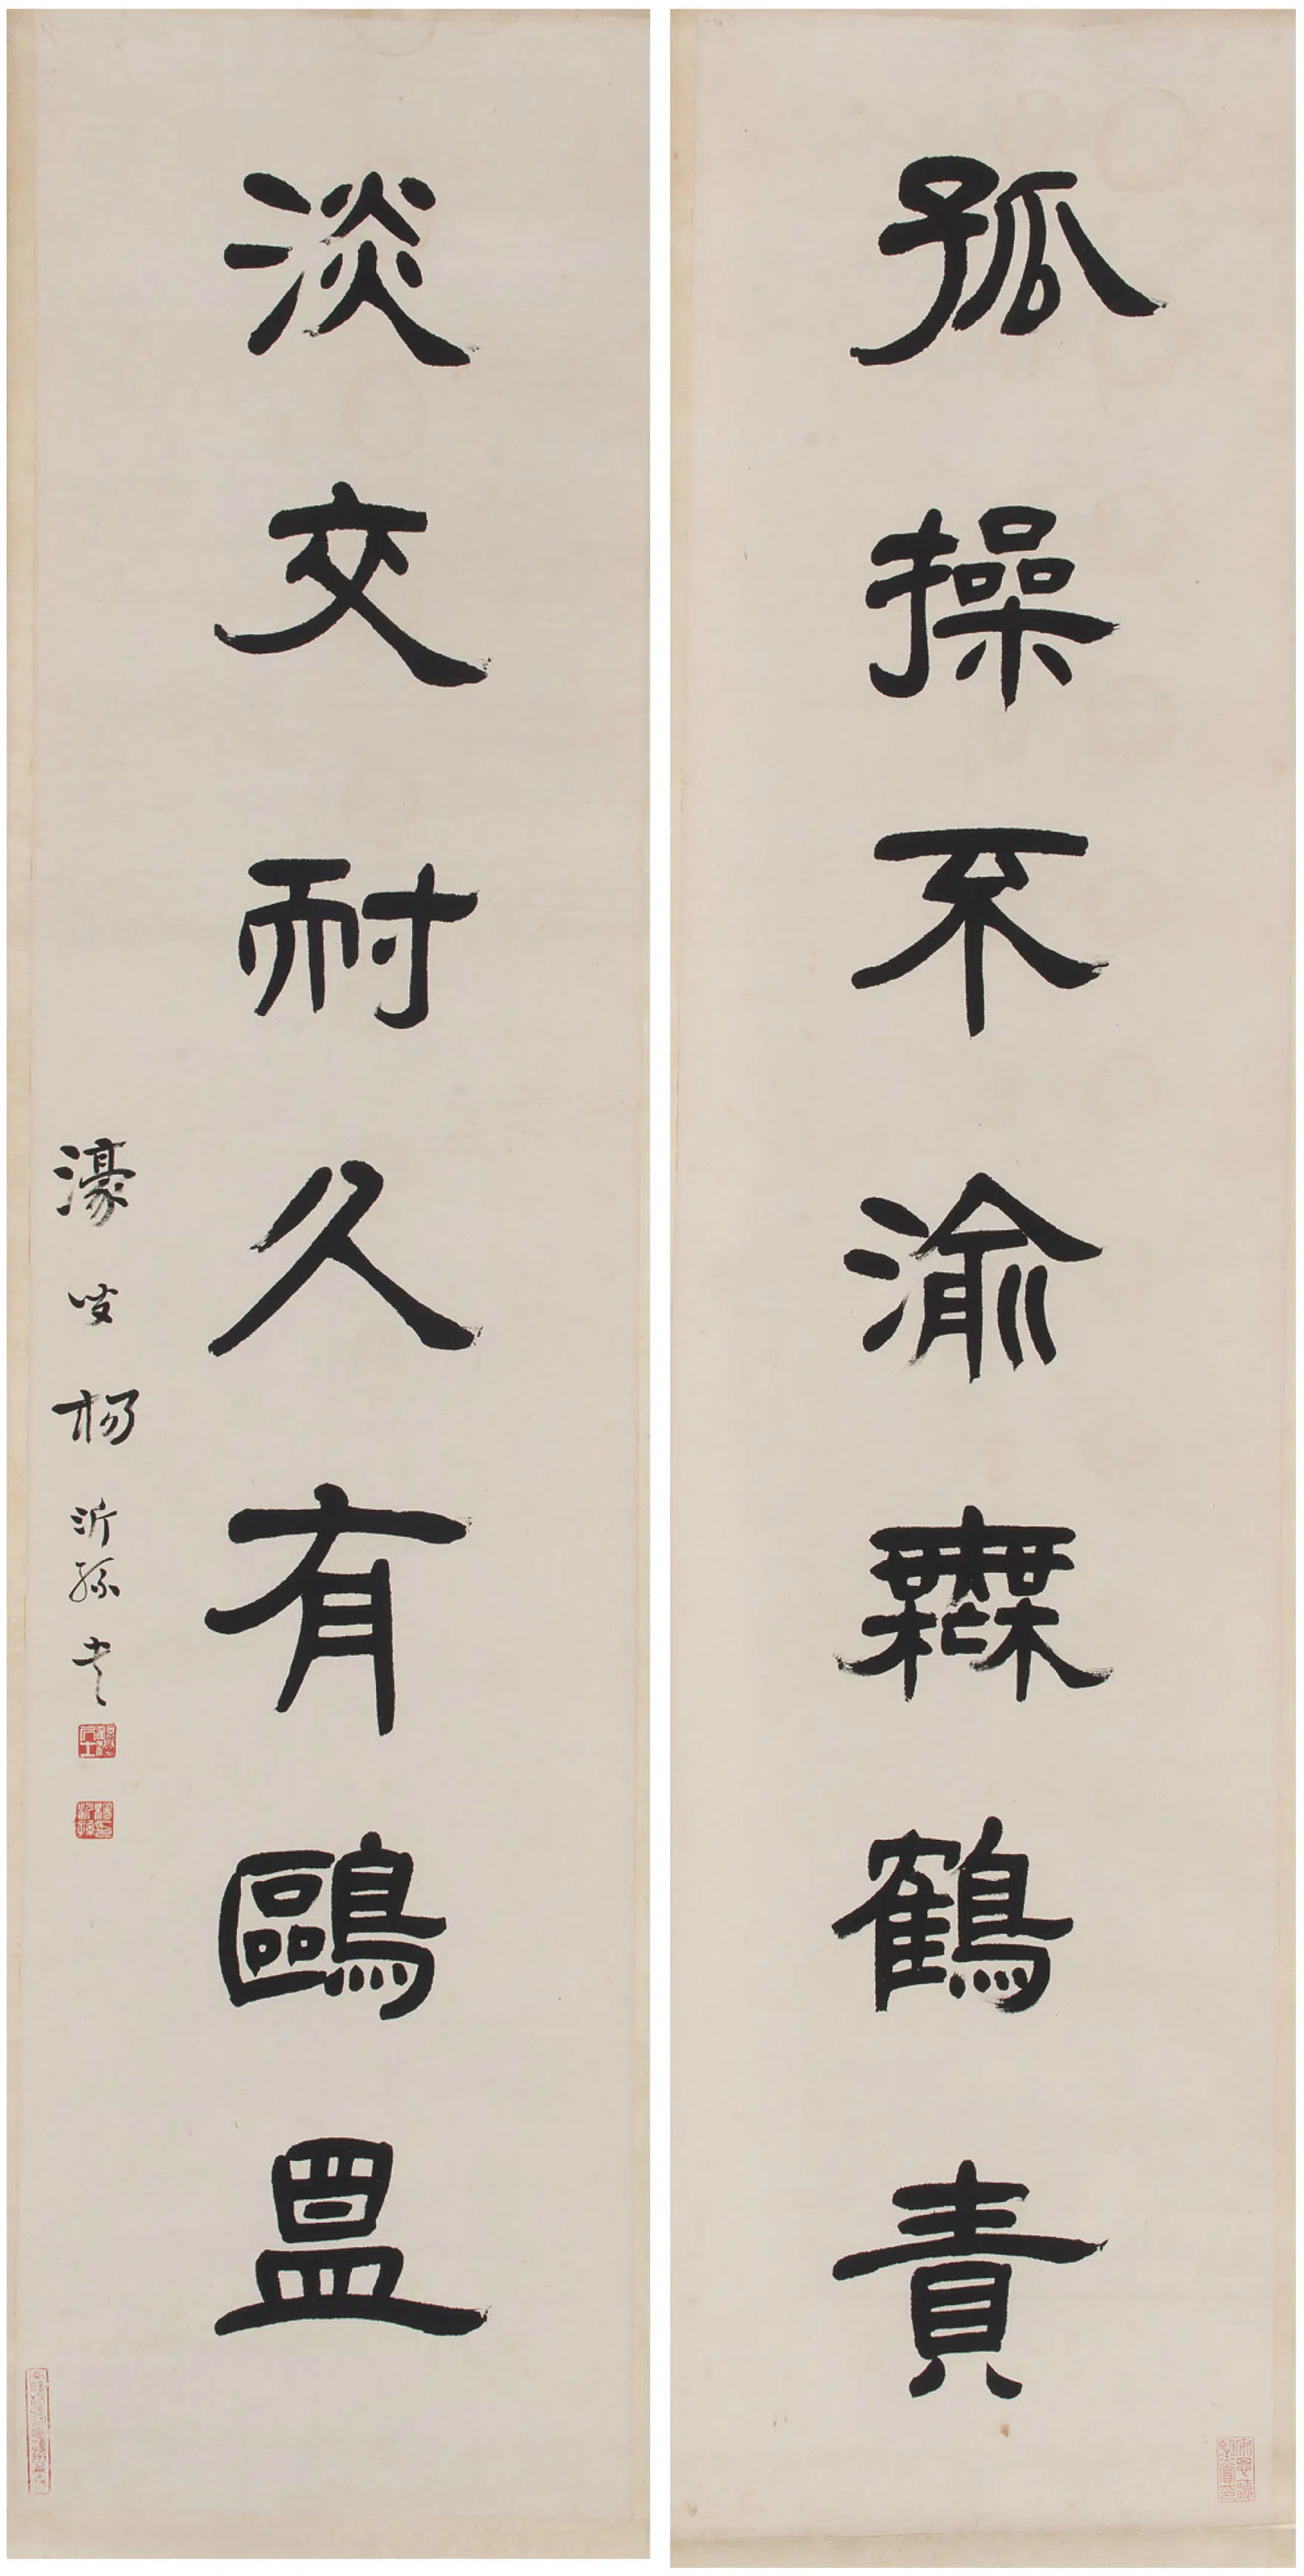 孤操不渝無鶴責
淡交耐久有鷗盟
濠叟楊沂孫書